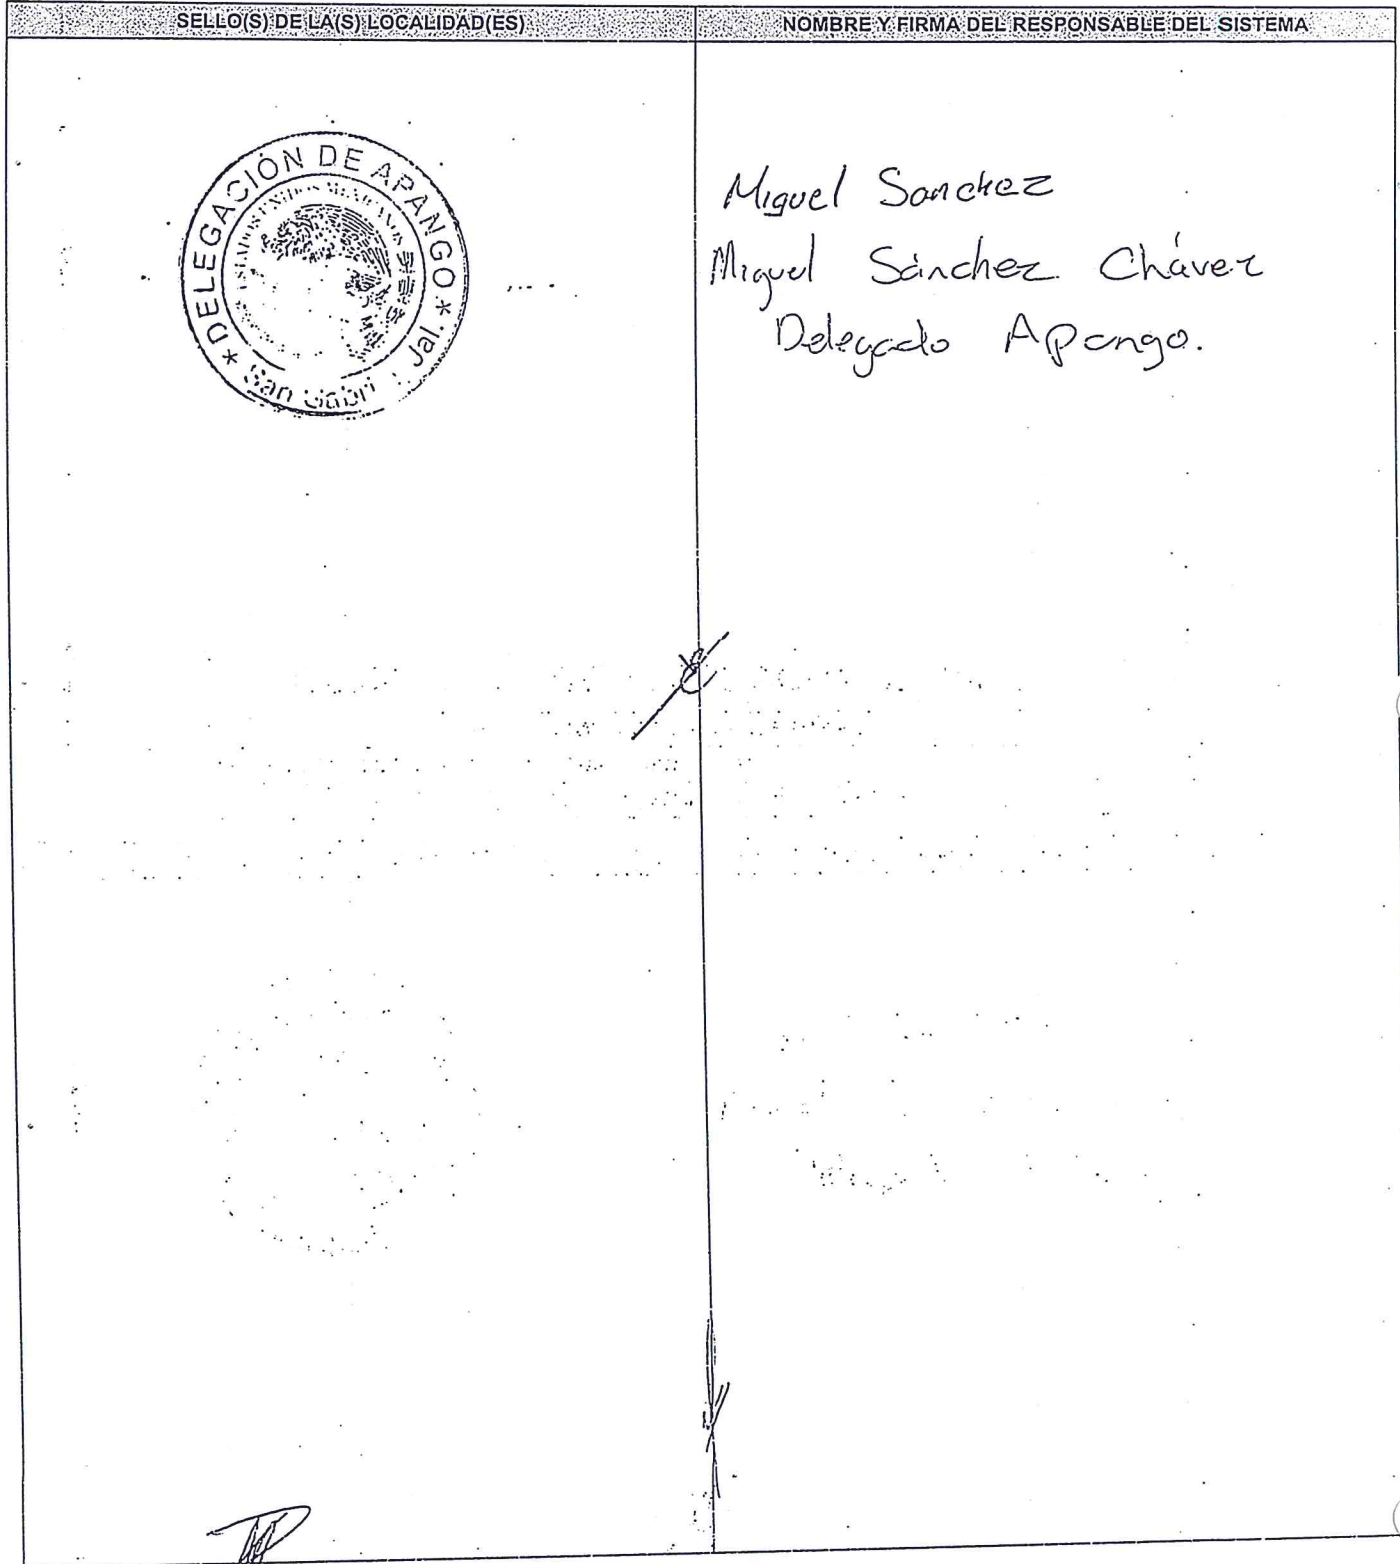 SELLO(S) DE LA(S) LOCALIDAD(ES)
NOMBRE Y FIRMA DEL RESPONSABLE DEL SISTEMA
* DELEGACIÓN DE APANGO *
ESTADOS UNIDOS MEXICANOS
San Jal.
Miguel Sanchez
Miguel Sánchez Chávez
Delegado Apango.